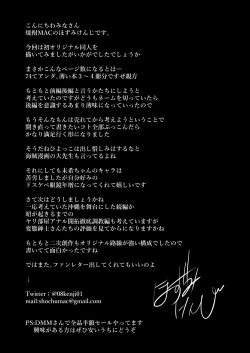 こんにちわみなさん
焼酎MACのほずみけんじです。
今回は初オリジナル同人を
描いてみましたがいかがでしたでしょうか
まさかこんなページ数になるとは―
74てアンタ、薄い本3～4冊分ですぜ親方
もともと前編後編と言うかたちにしようと
考えていたのですがどうもネームを切っていたら
後編を意識するあまり薄味になっていったので
もうそんなもんは売れてから考えようということで
開き直って書きたいコト全部ぶっこんだら
かなり満足行く形になりました
そうだねひよっこは出し惜しみはするなと
海賊漫画の大先生も言ってるよね
それにしても未希ちゃんのキャラは
苦労しましたが自分好みの
ドスケベ眼鏡年増になってくれて嬉しいです
さて次はどうしましょうかね
一応考えていた沖縄を舞台にした続編か
明が起きるまでの
ヤリ部屋アナル開拓徹底調教編も考えていますが
変態紳士さんたちの評価を見てから考えます
もともと二次創作もオリジナル路線が強い構成でしたので
書いてて面白かったですね
ではまた。ファンレター出してくれてもいいのよ
↓
Twitter：@08kenji01
mail:shochumac@gmail.com
PS:DMMさんで全品半額セールやってます
興味がある方はぜひ安いうちにどうぞ